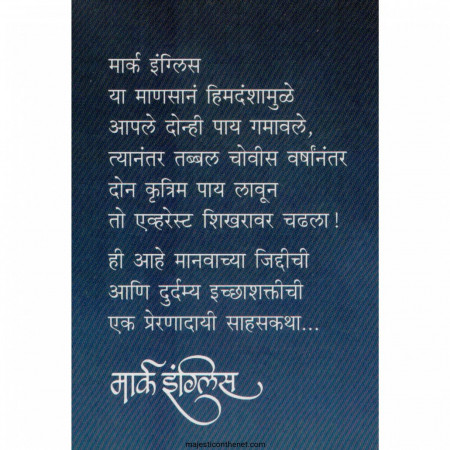 मार्क इंग्लिस
या माणसानं हिमदंशामुळे
आपले दोन्ही पाय गमावले,
त्यानंतर तब्बल चोवीस वर्षांनंतर
दोन कृत्रिम पाय लावून
तो एव्हरेस्ट शिखरावर चढला!
ही आहे मानवाच्या जिद्दीची
आणि दुर्दम्य इच्छाशक्तीची
एक प्रेरणादायी साहसकथा...
मार्क इंग्लिस
majesticonthenet.com